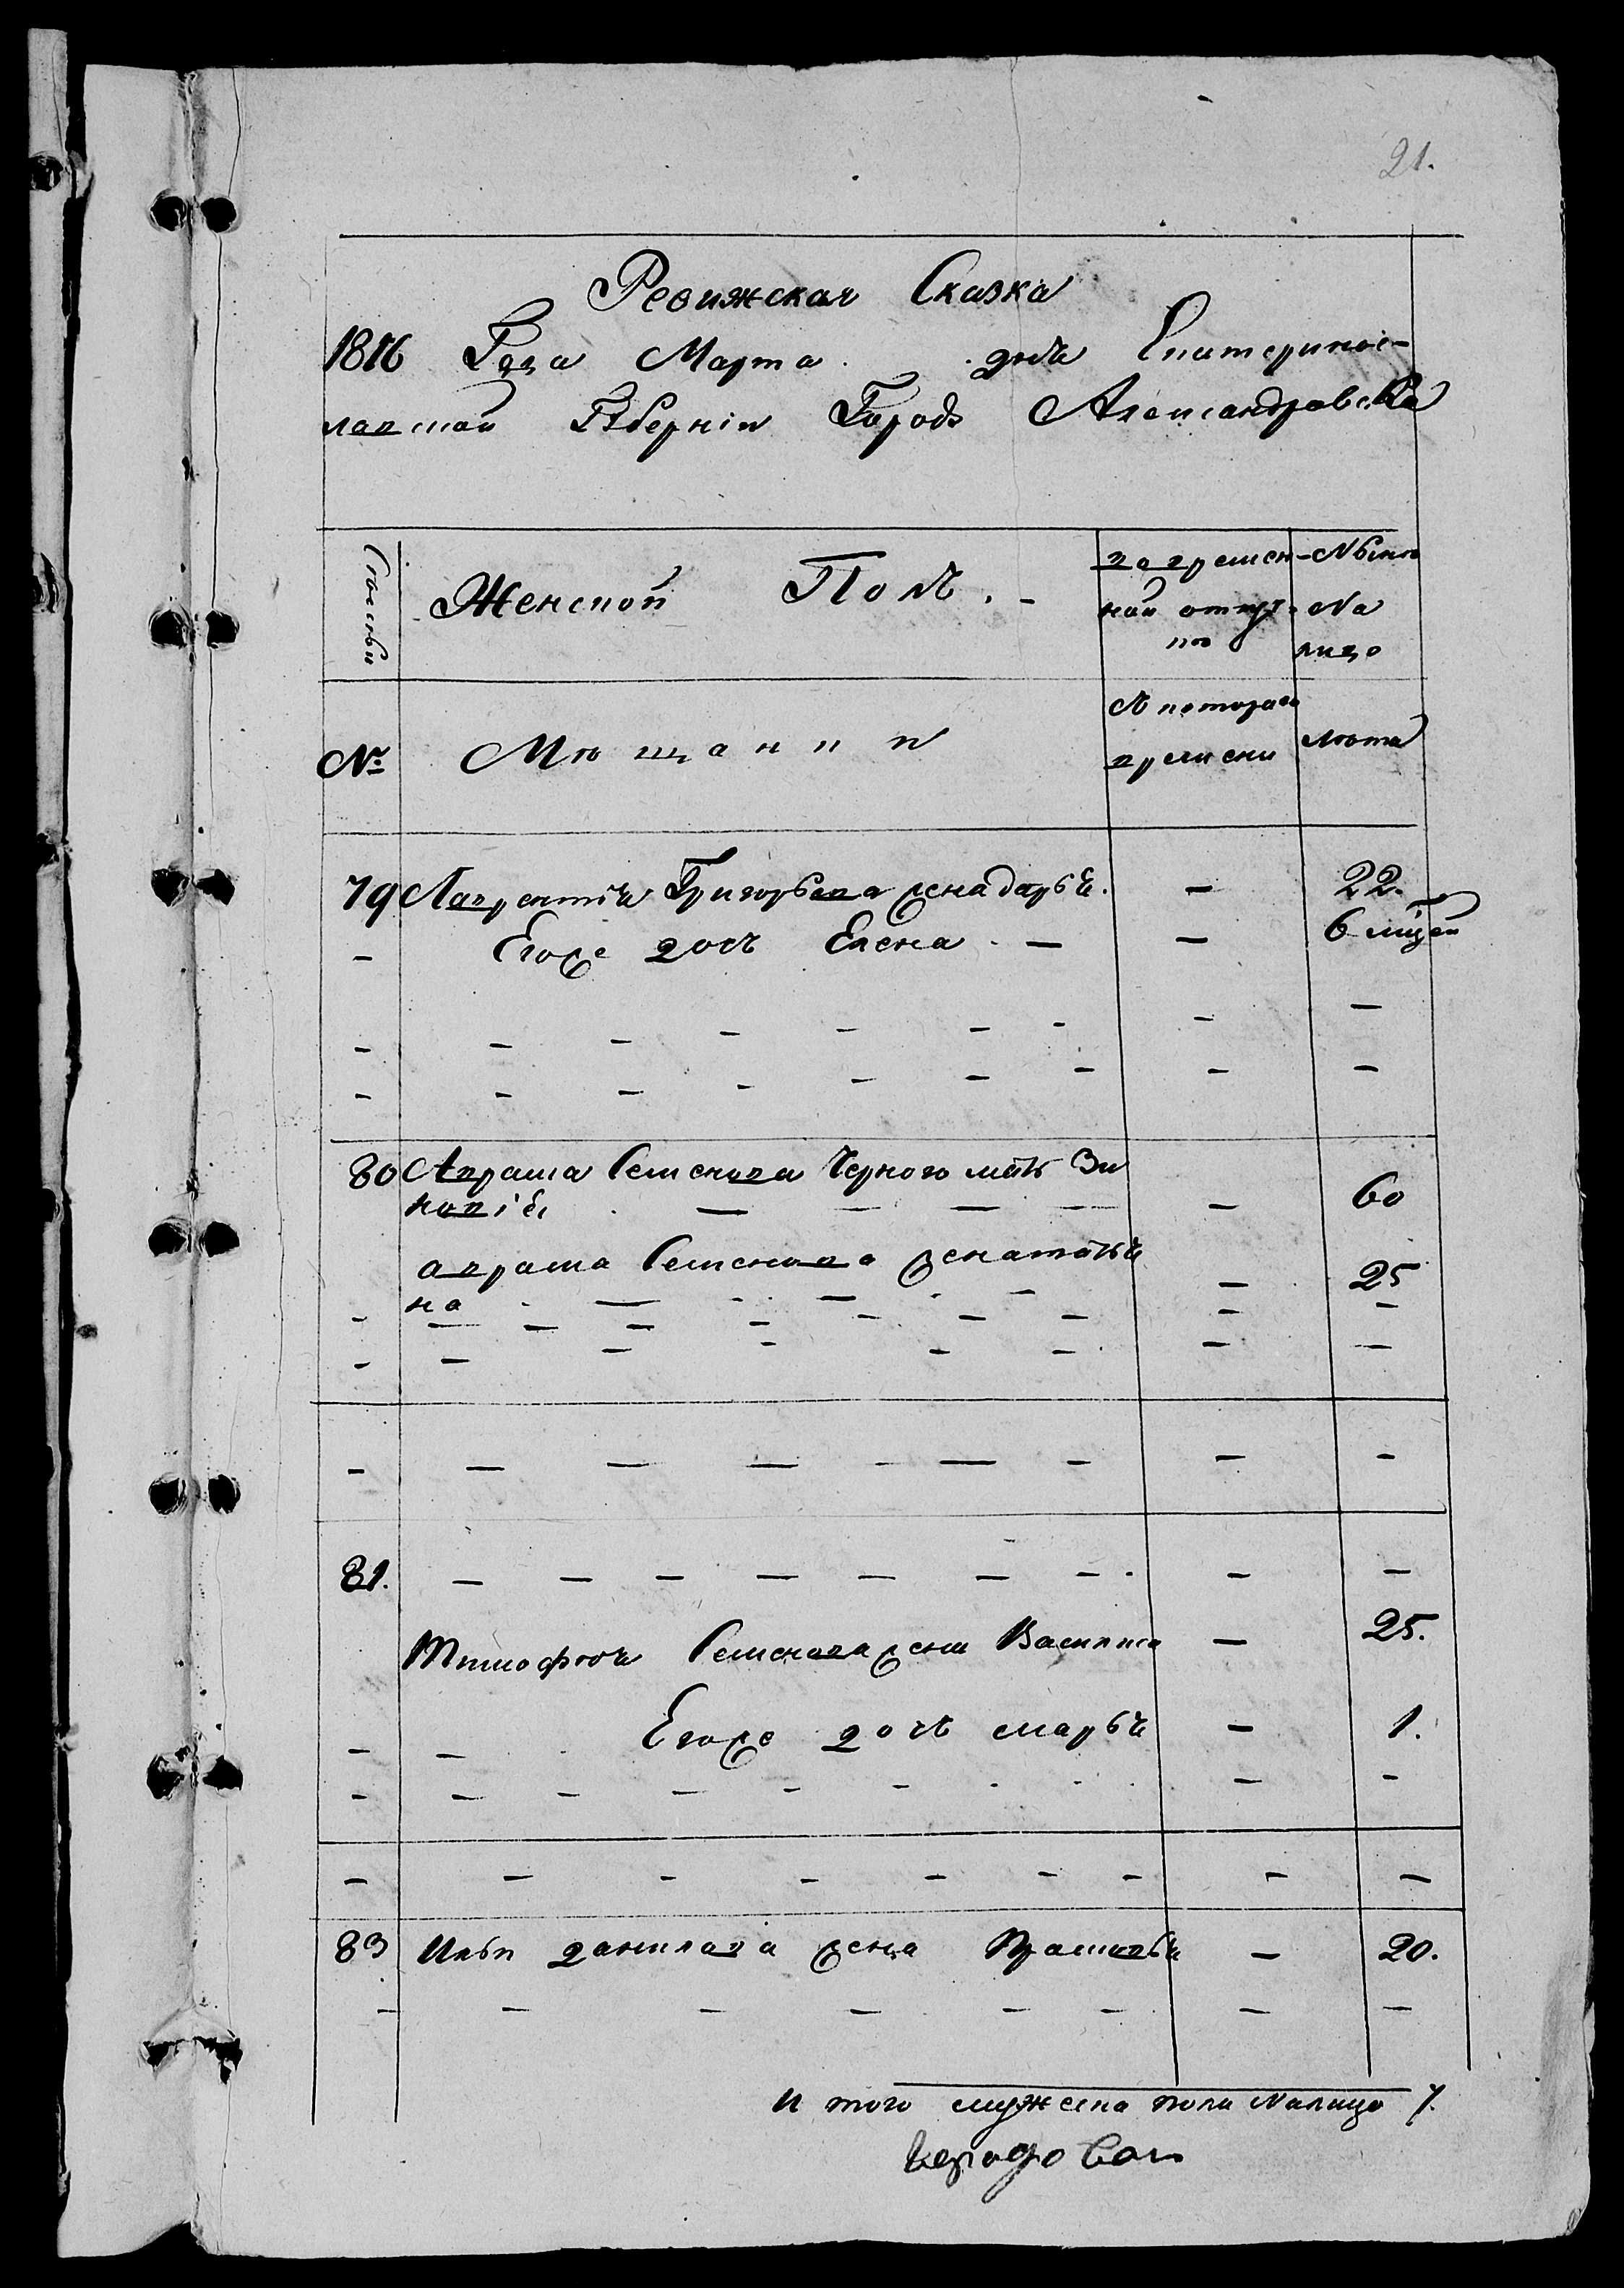 21.
Ревижская Сказка
1816 Года Марта днѧ Екатеринос-
лавской Губерніи Городъ Александровска
Семьи
Женской Полъ. -
во времен-
ной отлуч-
ке
Ныне
На
лицо
№
Мещанки
С котораго
времени
Лета
79 Лаврентія Григорьева жена дарья. - 22.
- Егоже дочь Елена. - - 6 мцей
80 Аврама Семенова Черного мать Зи
новія - 60
аврама Семенова жена татья
на - 25
81. - - -
Тимофея Семенова жена Василиса - 25.
- - Егоже дочь марья - 1.
83 Ильи данилова жена - 20.
И того женска пола Налицо 7.